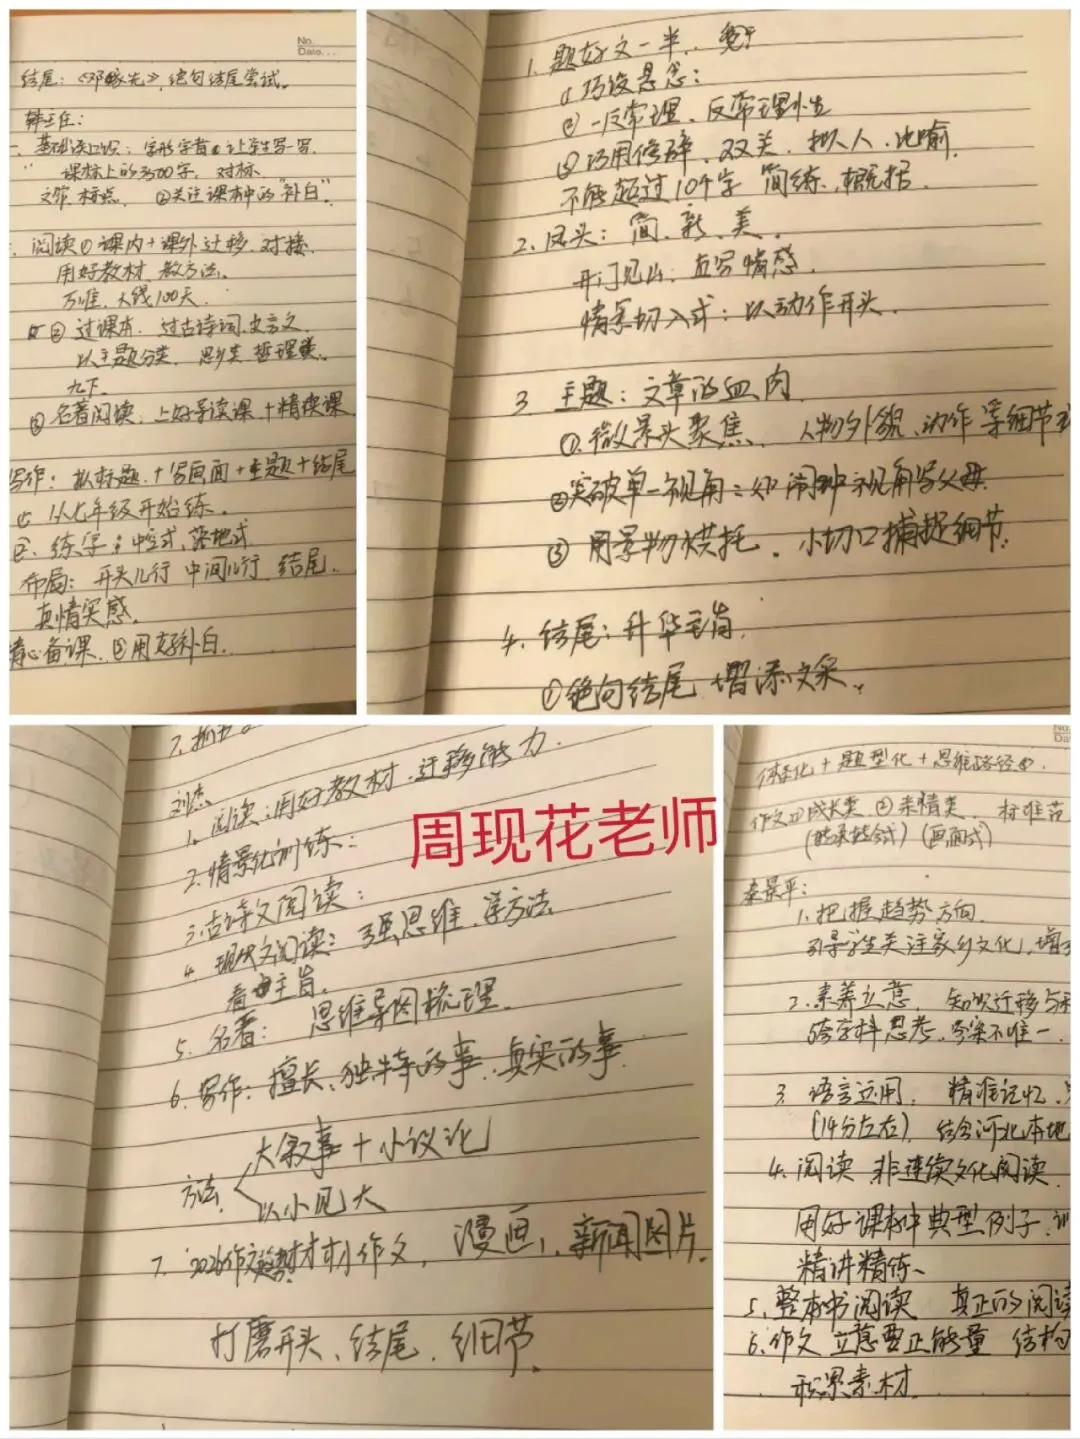 No.
Date...
结尾：《邓稼先》，绝句结尾尝试。
韩主任：
一、基础知识：字形字音 让学生写一写.
课标上的3500字，对标
文常 标点 ②关注课本中的"补白"。
阅读①课内+课外迁移.对接
用好教材 教方法。
万唯、大线100天.
②过课本. 过古诗词.文言文.
以主题分类 思乡类 哲理类.
九下
③名著阅读.上好导读课+精读课
写作：拟标题.+写画面+主题+结尾
从七年级开始练。
练字：中空式、落地式
布局：开头几行 中间几行 结尾.
真情实感。
精心备课、②用好补白.
1. 题好文一半.
巧设悬念：
②反常理、反常理
③巧用修辞.双关.拟人.比喻.
不能超过10个字 简练、概括.
2. 凤头：简、新、美.
开门见山：直写情感.
情景切入式：以动作开头.
3 主题：文章的血肉
①.微景头聚焦、人物外貌、动作等细节
②突破单一视角：如闹钟视角写父母.
③用景物烘托.小切口捕捉细节.
4. 结尾：升华主旨.
①绝句结尾 增添文采.
7.
刘杰
1. 阅读：用好教材.迁移能力.
2. 情景化训练：
3. 古诗文阅读：
4. 现代文阅读：强思维、学方法
看 主旨.
5. 名著：思维导图梳理.
6. 写作：擅长、独特的事、真实的事.
周现花老师
方法 大叙事+小议论
以小见大
7. 2026作文趋势 材料作文，漫画、新闻图片.
打磨开头、结尾.细节.
No.
Da
体系化+题型化+思维路径.
作文①成长类 ②亲情类. 标准范
(画面式)
秦景平：
1. 把握趋势方向.
引导学生关注家乡文化，增
2. 素养立意. 知识迁移与
跨学科思考.答案不唯一.
3. 语言运用. 精准记忆.
(14分左右). 结合河北本地
4. 阅读.非连续文化阅读.
用好课本中典型例子.
精讲精练、
5. 整本书阅读 真正的阅读
6. 作文 立意要正能量 结构
积累素材.